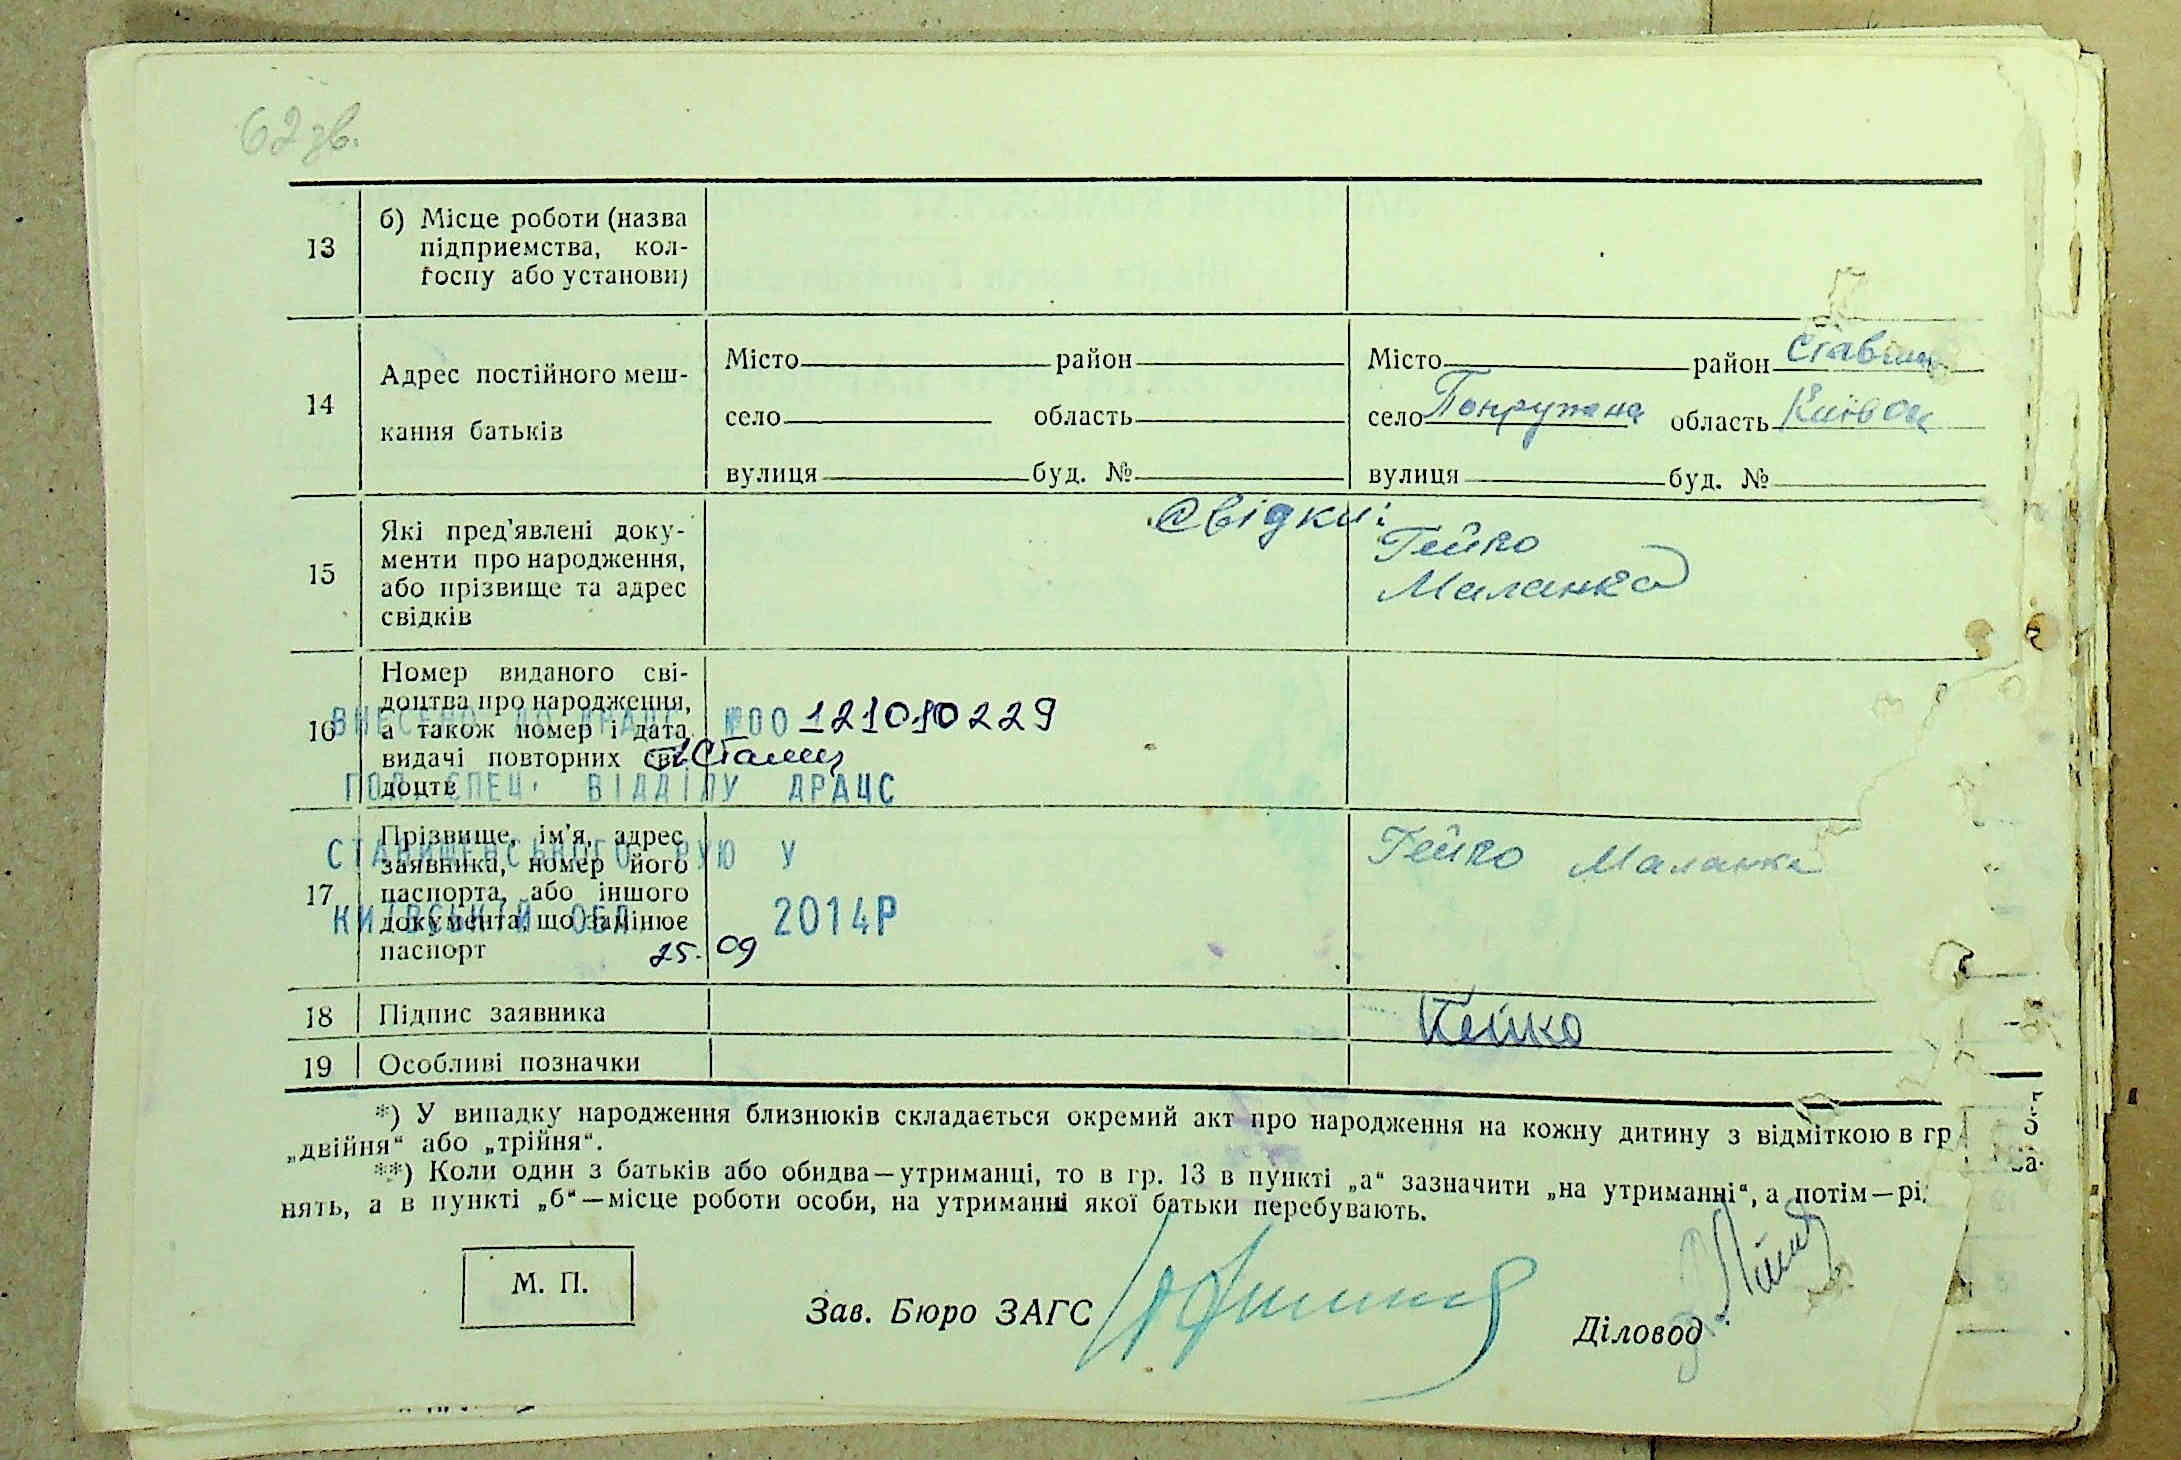 62 зв.
13
б) Місце роботи (назва
підприємства, кол-
госпу або установи)
14
Адрес постійного меш-
кання батьків
Місто район
село область
вулиця буд. №
Місто район Ставищ
село область Київськ
вулиця буд. №
15
Які пред'явлені доку-
менти про народження,
або прізвище та адрес
свідків
Свідки:
Гейко
Маланка
16
Номер виданого сві-
доцтва про народження,
а також номер і дата
видачі повторних сві-
доцтв
ВНЕСЕНО ДО ДРАЦС №00 121010229
ГОЛ. СПЕЦ. ВІДДІЛУ ДРАЦС
СТАВИЩЕНСЬКОГО РУЮ У
КИЇВСЬКІЙ ОБЛ. 2014Р
25. 09
17
Прізвище, ім'я, адрес
заявника, номер його
паспорта, або іншого
документа, що замінює
паспорт
Гейко Маланка
18
Підпис заявника
Гейко
19
Особливі позначки
*) У випадку народження близнюків складається окремий акт про народження на кожну дитину з відміткою в гр
„двійня“ або „трійня“.
**) Коли один з батьків або обидва—утриманці, то в гр. 13 в пункті „а“ зазначити „на утриманні“, а потім—рі
нять, а в пункті „б“—місце роботи особи, на утриманні якої батьки перебувають.
М. П.
Зав. Бюро ЗАГС
Діловод